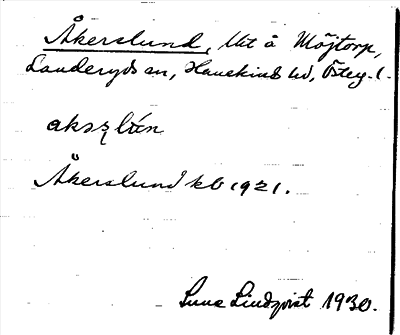 Åkerslund, lht å Möjtorp,
Landeryds sn, Hanekinds hd, Östeg. l.
aksʒlún
Åkerslund kb 1921.
Sune Lindqvist 1930.